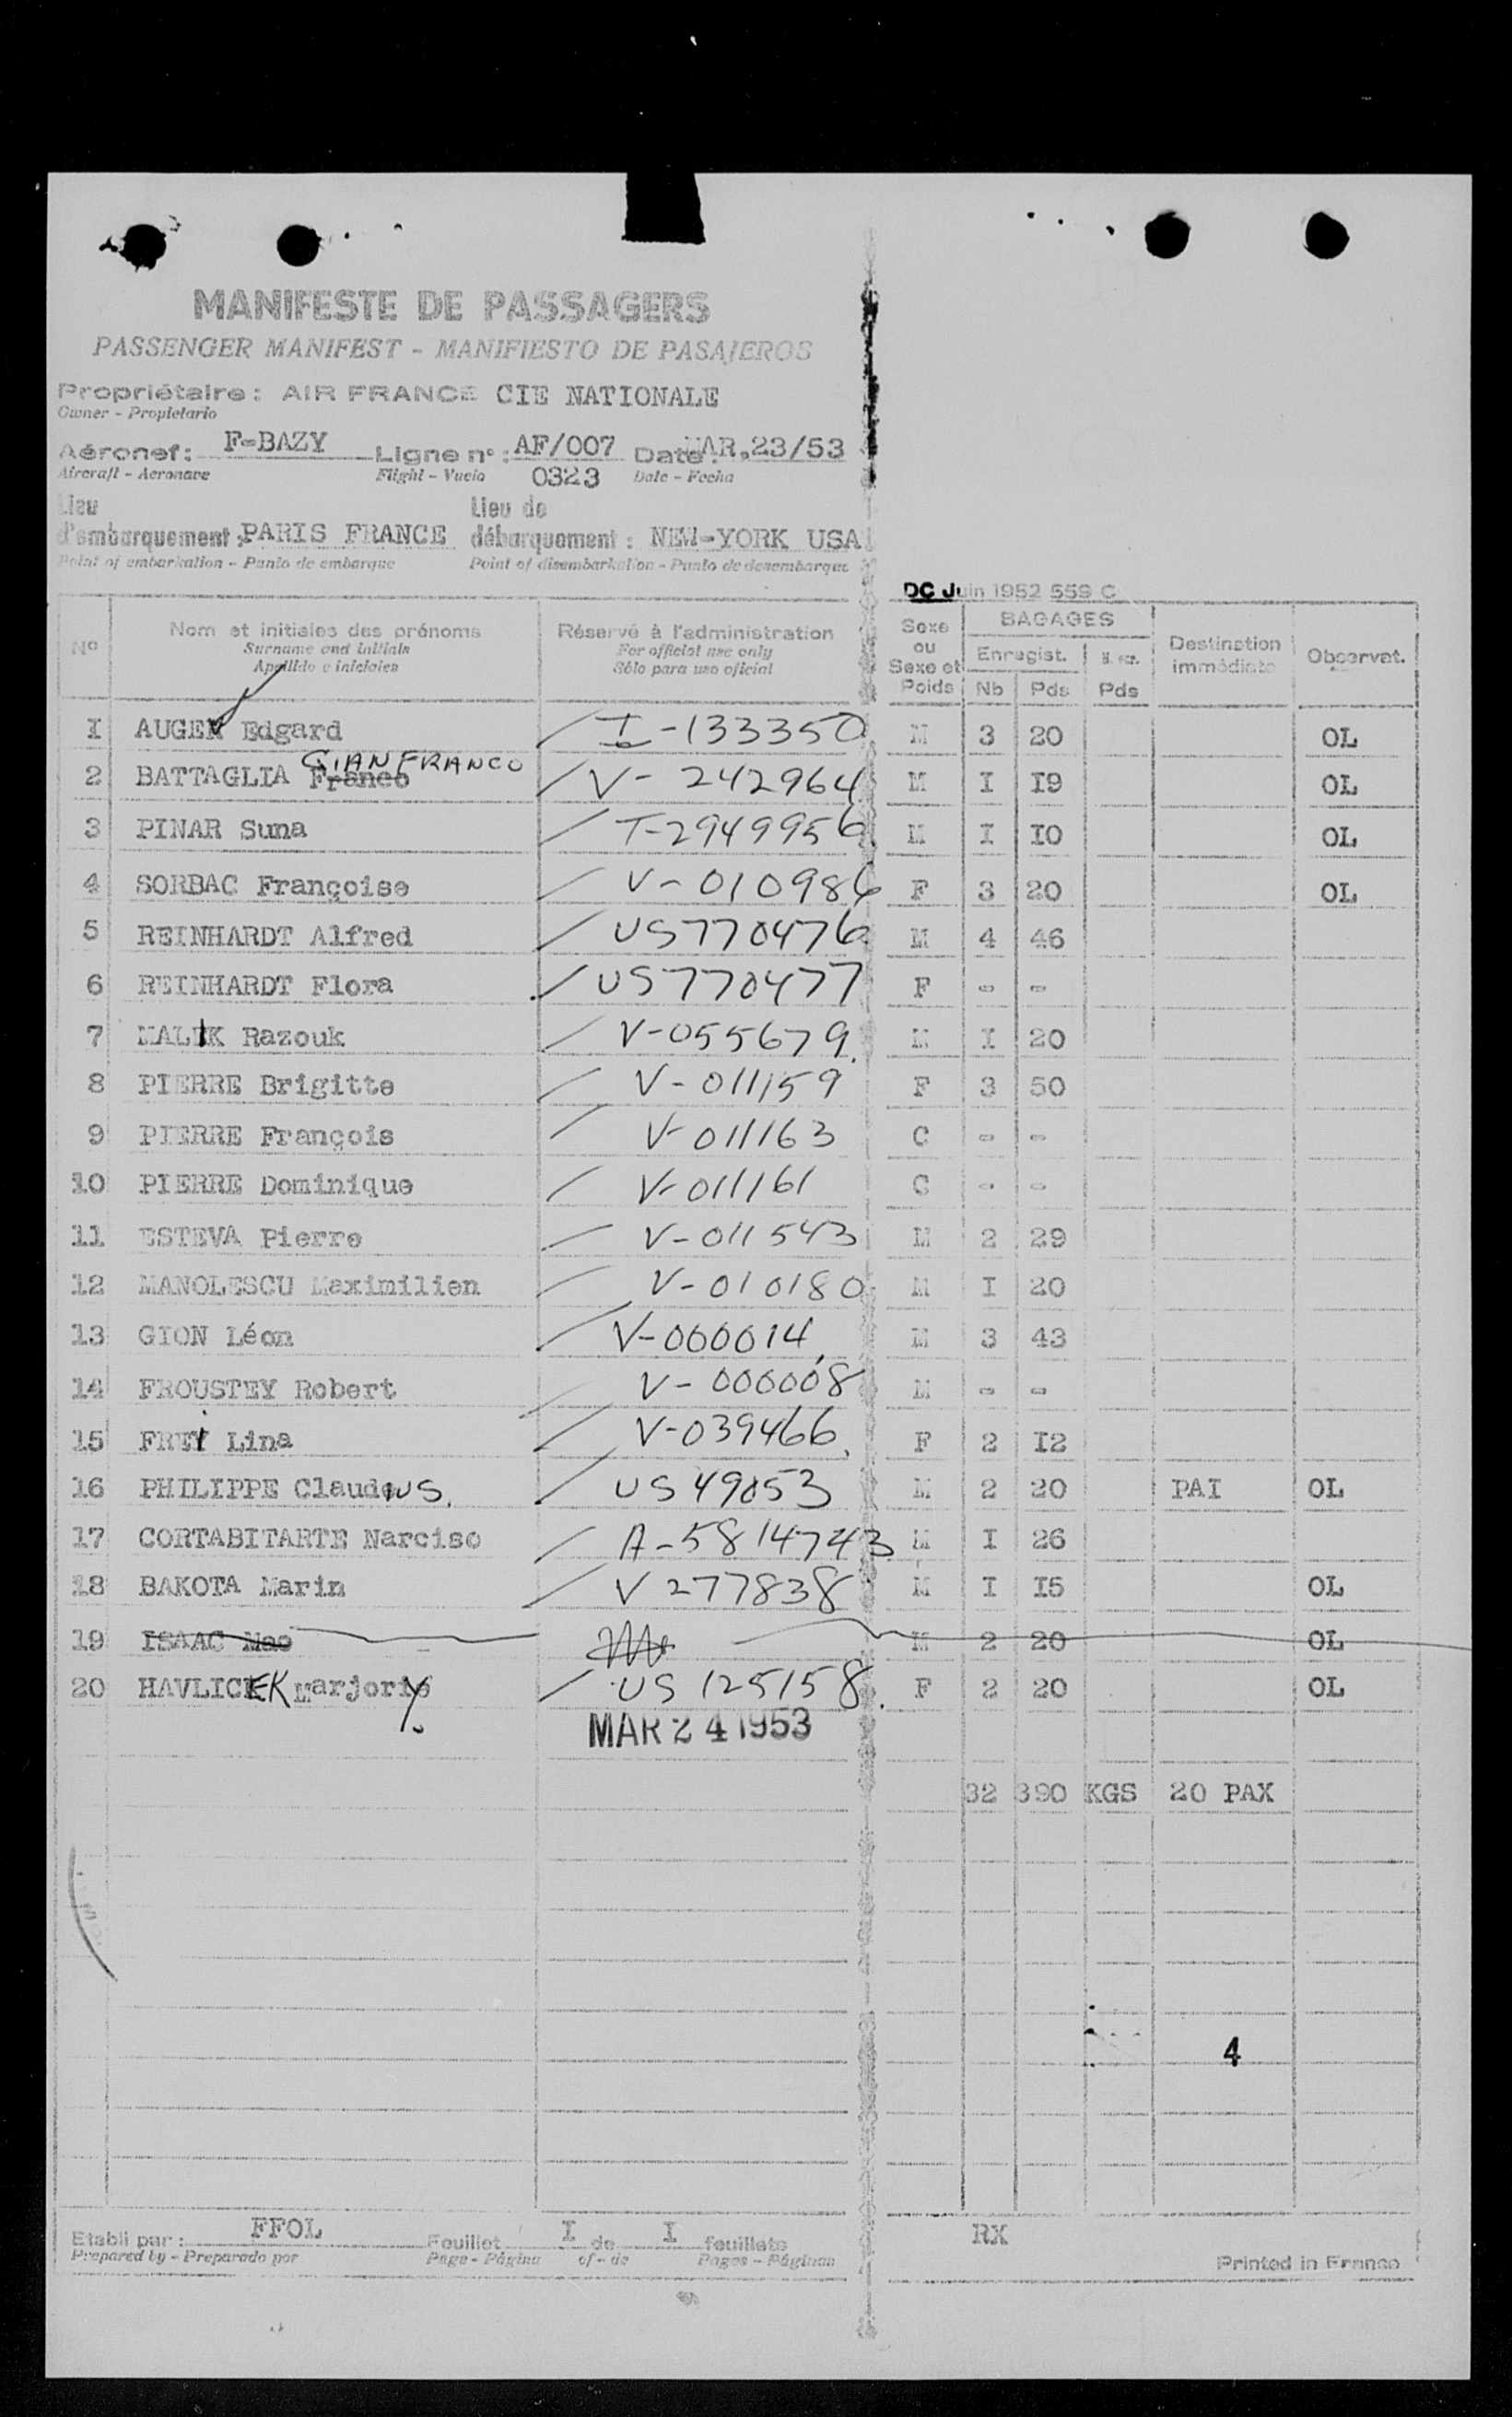 MANIFESTE DE PASSAGERS
PASSENGER MANIFEST - MANIFIESTO DE PASAJEROS
Propriétaire : AIR FRANCE CIE NATIONALE
Owner - Propietario
Aéronef : F-BAZY Ligne n° : AF/007 Date : MAR,23/53
Aircraft - Aeronave Flight - Vuelo 0323 Date - Fecha
Lieu d'embarquement : PARIS FRANCE Lieu de débarquement : NEW-YORK USA
Point of embarkation - Punto de embarque Point of disembarkation - Punto de desembarque
DC Juin 1952 559 C
N° Nom et initiales des prénoms Réservé à l'administration Sexe ou Sexe et Poids BAGAGES Destination immédiate Observat.
Surname and initials For official use only Enregist.
Apellido e iniciales Sólo para uso oficial Nb Pds Pds
I AUGER Edgard I-133350 M 3 20 OL
2 BATTAGLIA Franco GIANFRANCO V-242964 M I I9 OL
3 PINAR Suna T-2949956 M I IO OL
4 SORBAC Françoise V-010986 F 3 20 OL
5 REINHARDT Alfred US770476 M 4 46
6 REINHARDT Flora US770477 F - -
7 MALIK Razouk V-055679. M I 20
8 PIERRE Brigitte V-011159 F 3 50
9 PIERRE François V-011163 C - -
10 PIERRE Dominique V-011161 C - -
11 ESTEVA Pierre V-011543 M 2 29
12 MANOLESCU Maximilien V-010180 M I 20
13 GION Léon V-000014 M 3 43
14 FROUSTEY Robert V-000008 M - -
15 FREI Lina V-039466. F 2 I2
16 PHILIPPE ClaudIUS. US 49053 M 2 20 PAI OL
17 CORTABITARTE Narciso A-5814743 M I 26
18 BAKOTA Marin V 277838 M I I5 OL
19 ISAAC Mao M 2 20 OL
20 HAVLICEK Marjory. US 125158. F 2 20 OL
MAR 24 1953
32 390 KGS 20 PAX
4
Etabli par : FFOL Feuillet I de I feuillets RX
Prepared by - Preparado por Page - Página of - de Pages - Páginas Printed in France